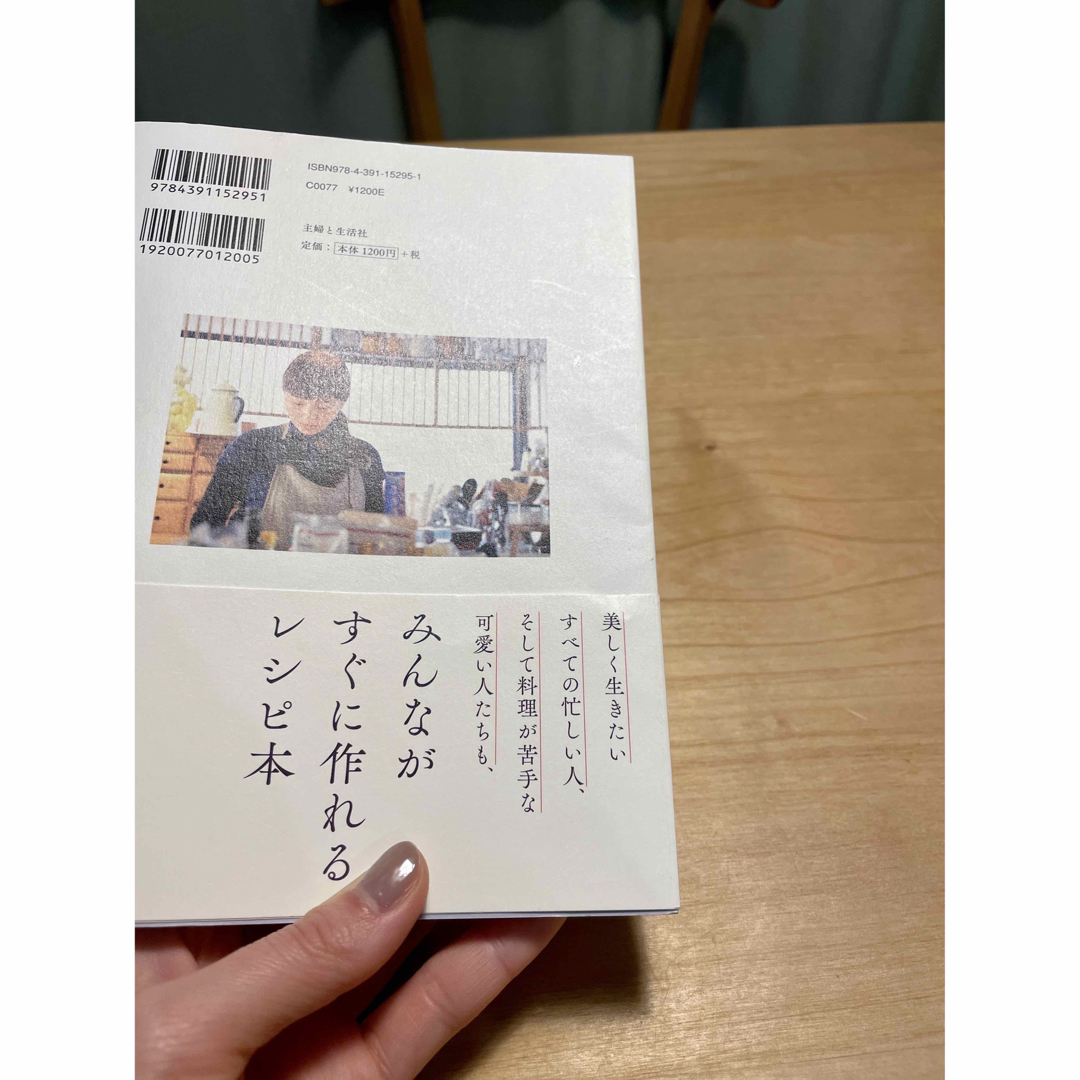 ISBN978-4-391-15295-1
C0077 ¥1200E
9784391152951
主婦と生活社
定価：本体1200円+税
1920077012005
美しく生きたい
すべての忙しい人、
そして料理が苦手な
可愛い人たちも、
みんなが
すぐに作れる
レシピ本